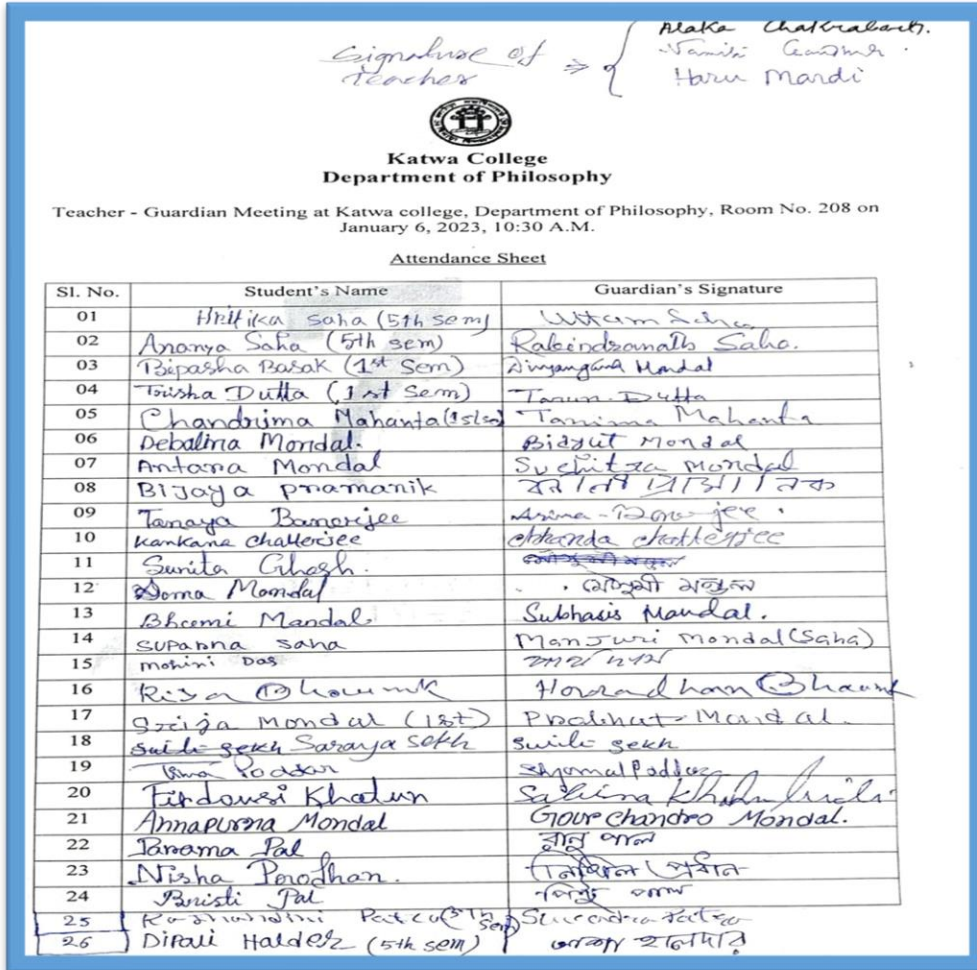 Signature of Teacher ⇒ {
Alaka Chakrabarti.
Haru Mardi
Katwa College
Department of Philosophy
Teacher - Guardian Meeting at Katwa college, Department of Philosophy, Room No. 208 on
January 6, 2023, 10:30 A.M.
Attendance Sheet
Sl. No. Student's Name Guardian's Signature
01 Hritika Saha (5th sem) Uttam Saha
02 Ananya Saha (5th sem) Rabindranath Saha.
03 Bipasha Basak (1st Sem) Mondal
04 Trisha Dutta (1st Sem) Tarun Dutta
05 Chandrima Mahanta (1st sem) Tanima Mahanta
06 Debalina Mondal. Bidyut Mondal
07 Antara Mondal Suchitra Mondal
08 Bijaya pramanik প্রামানিক
09 Tanaya Banerjee
10 Kankana Chatterjee Chhanda Chatterjee
11 Sunita Ghosh.
12 Soma Mondal মৌসুমী মন্ডল
13 Bhoomi Mandal Subhasis Mandal.
14 Suparna Saha Manjuri Mondal (Saha)
15 Mohini Das
16 Riya Bhowmik
17 Srija Mondal (1st) Prabhat Mondal.
18 Saraya Sekh
19 Poddar Shyamal Poddar
20 Firdousi Khatun Sabina
21 Annapurna Mondal Gour Chandro Mondal.
22 Parama Pal পাল
23 Nisha Porodhan.
24 Bristi Pal পাল
25 (5th sem)
26 Dipali Halder (5th sem) হালদার